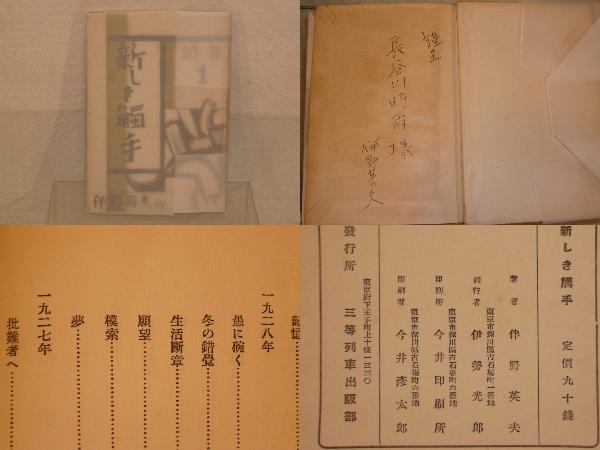 新しき觸手
1
伴野英夫
謹呈
長谷川時雨様
伴野英夫
記憶
一九二八年
愚に碗く
冬の錯覺
生活斷章
願望
模索
夢
一九二七年
批難者へ
新しき觸手 定價九十錢
著者 伴野英夫
東京市深川區古石場町一番地
發行者 伊勢光郎
東京市深川區古石場町六番地
印刷所 今井印刷所
東京市深川區古石場町六番地
印刷者 今井彦太郎
東京府下王子町上十條一三三〇
發行所 三等列車出版部